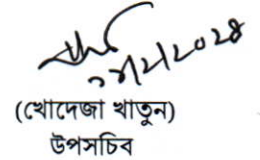 (খোদেজা খাতুন)
উপসচিব